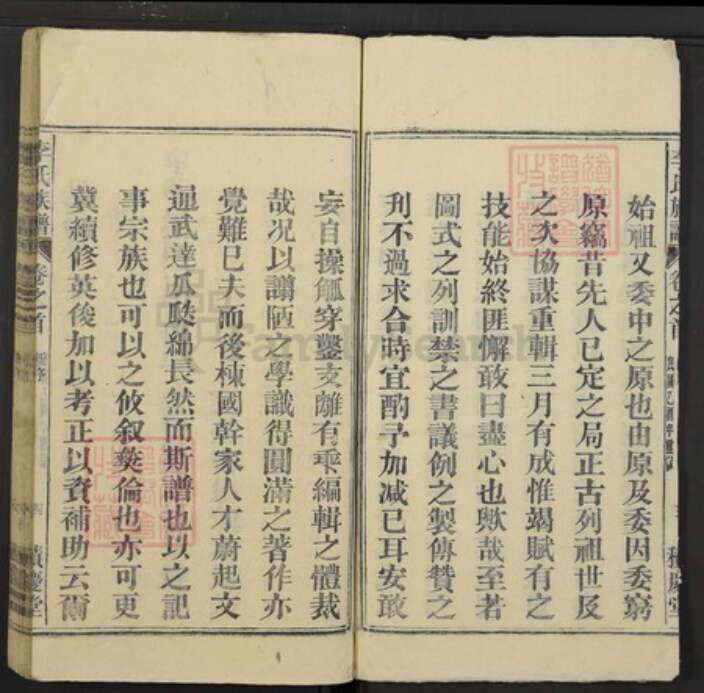 李氏族譜 卷之首
始祖又委中之原也由原及委因委窮
原竊昔先人已定之局正古列祖世及
之次協謀重輯三月有成惟竭賦有之
技能始終匪懈敢曰盡心也歟哉至若
圖式之列訓禁之書議例之製傳贊之
刊不過求合時宜酌予加減已耳安敢
妄自操觚穿鑿支離有乘編輯之體裁
哉况以謭陋之學識得圓滿之著作亦
覺難已夫而後棟國幹家人才蔚起文
通武達瓜瓞綿長然而斯譜也以之記
事宗族也可以之攸叙彜倫也亦可更
冀續修英俊加以考正以資補助云爾
李氏族譜 卷之首
四
FamilySearch